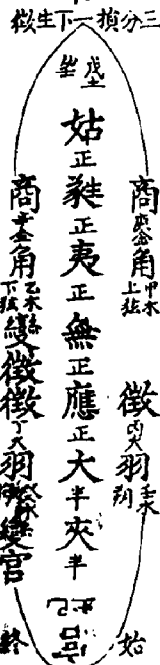 三分損一下生徵
戊土
姑正蕤正夷正無正應正大半夾半
商庚金角甲木上弦
徵丙火羽壬水朔
始
商辛金角乙木下弦變徵徵丁火羽癸水變宮
終